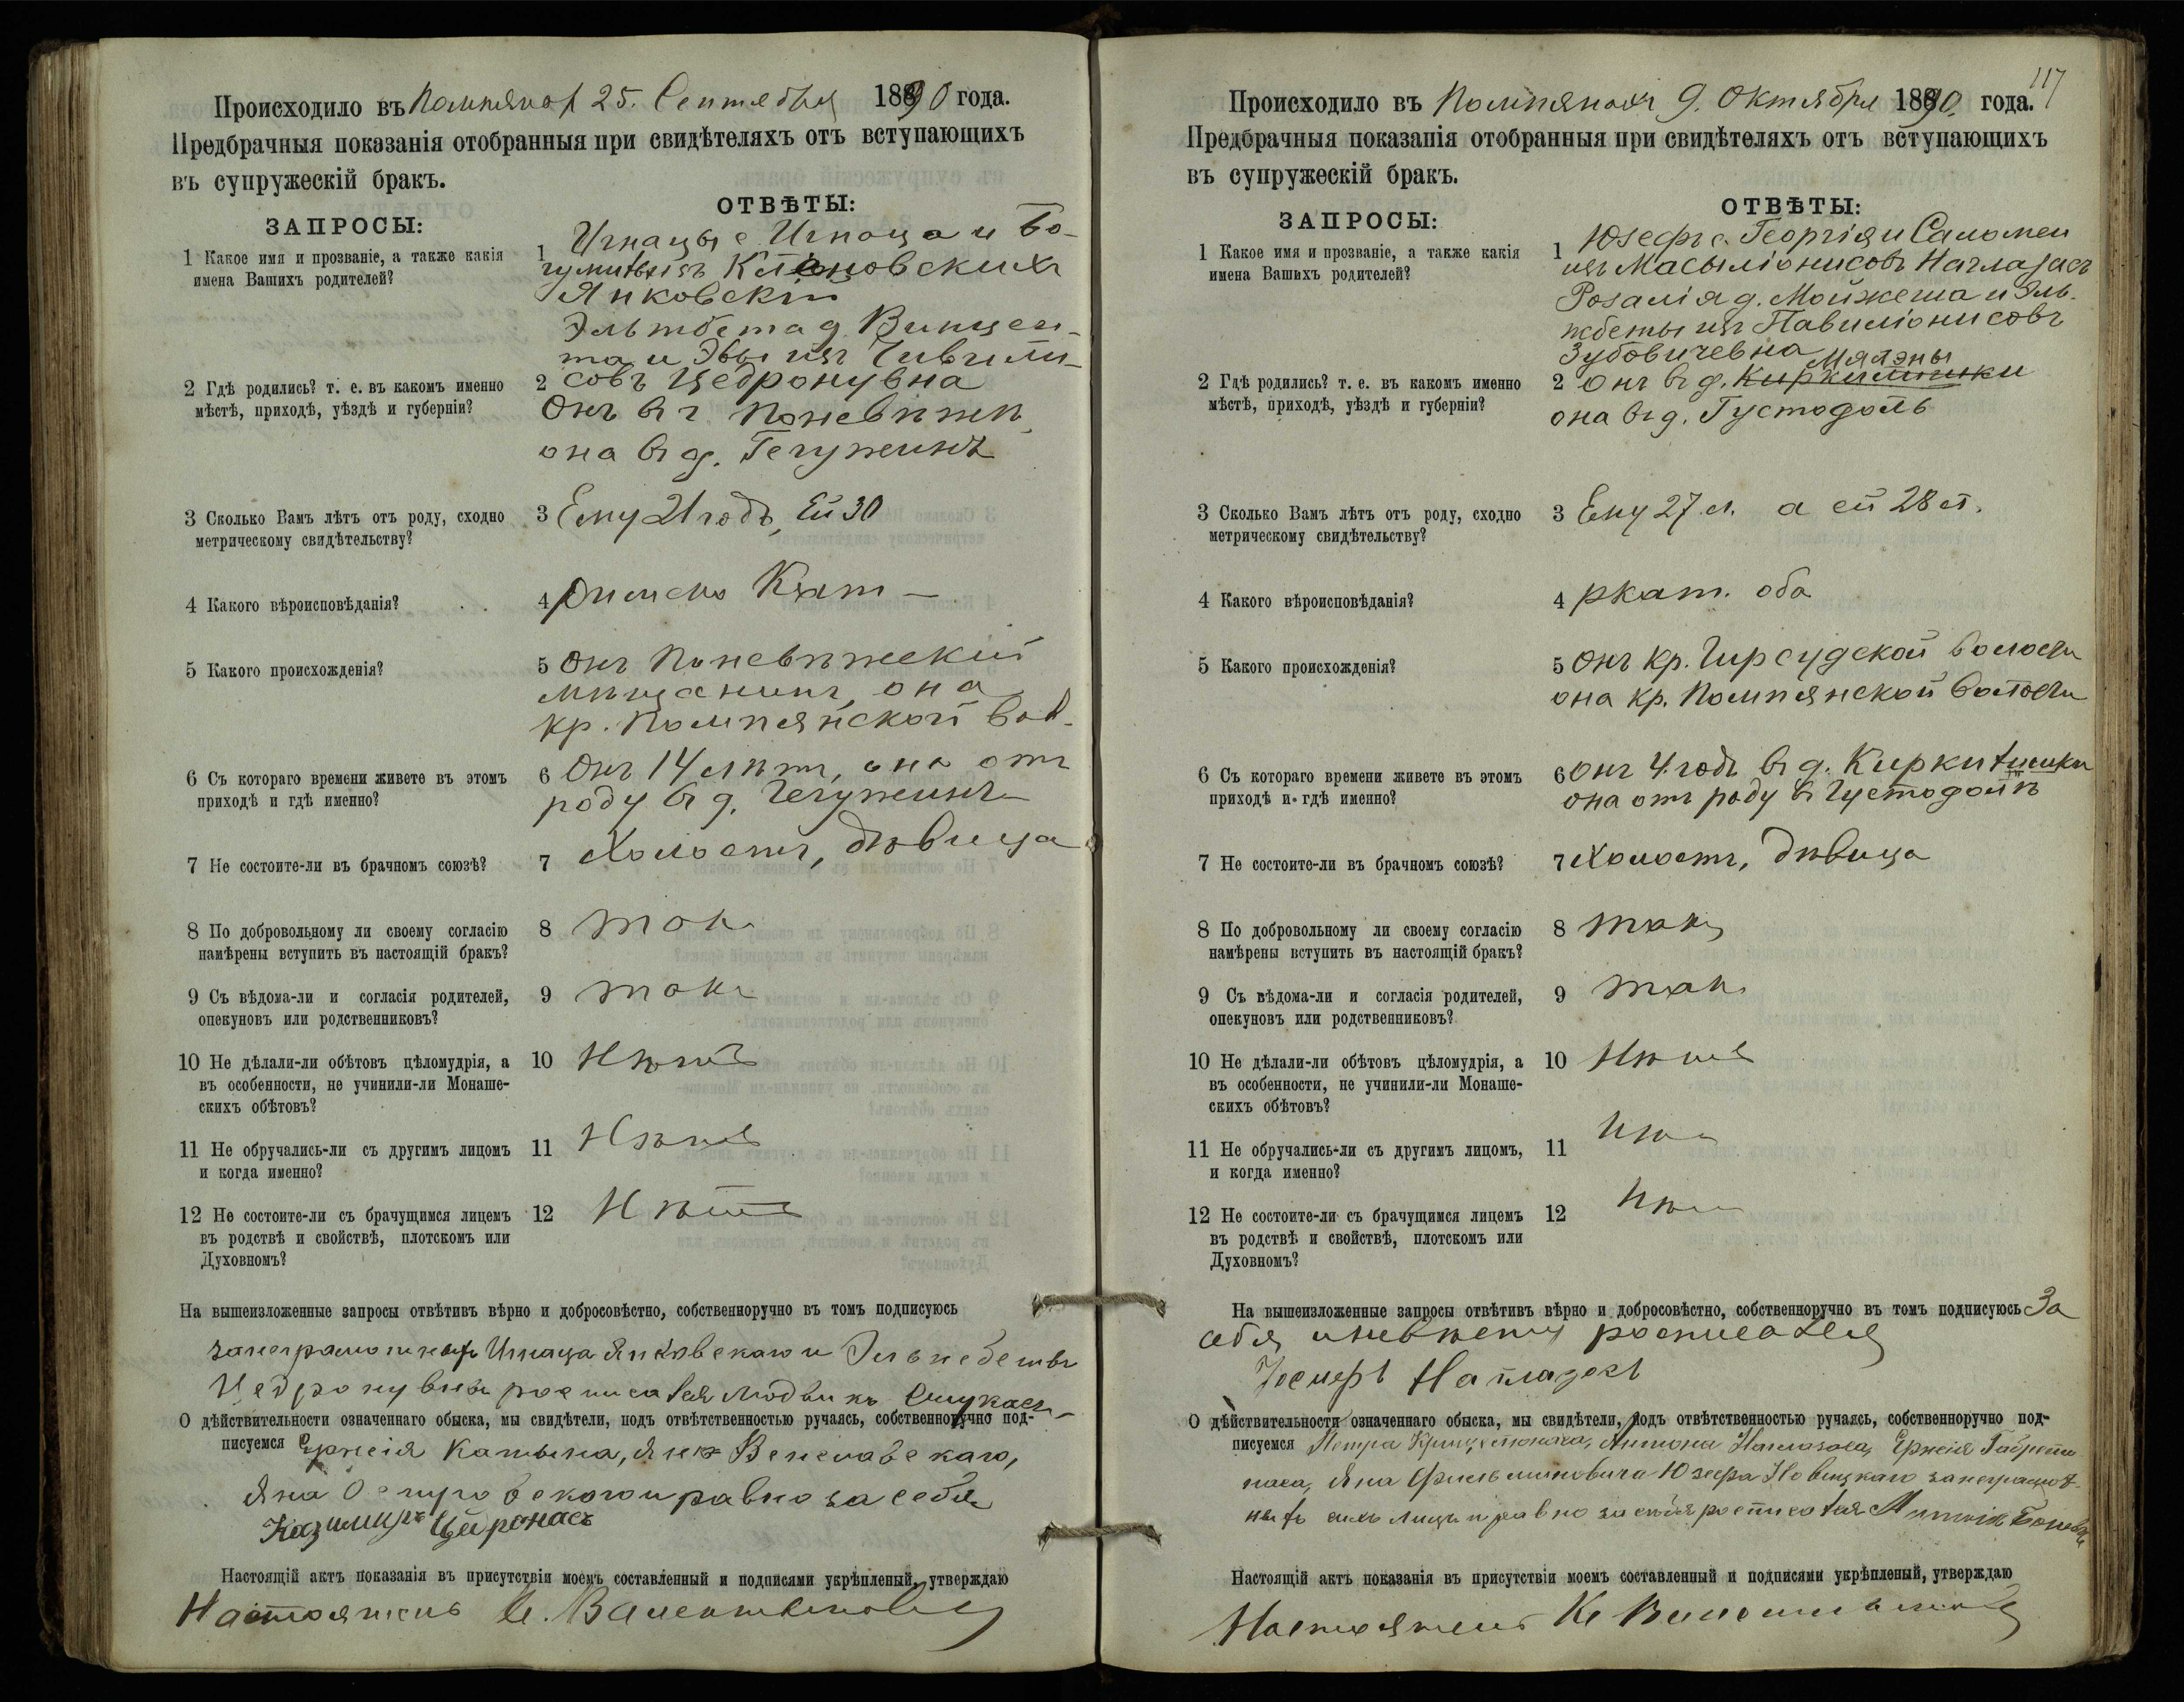 Происходило въ Помпянах 25. Сентября 1890 года.
Предбрачныя показанія отобранныя при свидѣтеляхъ отъ вступающихъ
въ супружескій бракъ.
ЗАПРОСЫ:
ОТВѢТЫ:
1 Какое имя и прозваніе, а также какія
имена Вашихъ родителей?
1 Игнацы с. Игнаца и Бо-
гумилы изъ Клѣновскихъ
Янковскій
Эльжбета д. Винцен-
та и Эвы изъ
совъ Цедронувна
2 Гдѣ родились? т. е. въ какомъ именно
мѣстѣ, приходѣ, уѣздѣ и губерніи?
2
Онъ въ г. Поневѣжѣ,
она въ д. Гегужинѣ
3 Сколько Вамъ лѣтъ отъ роду, сходно
метрическому свидѣтельству?
3 Ему 21 годъ, Ей 30
4 Какого вѣроисповѣданія?
4 римско Кат —
5 Какого происхожденія?
5 Онъ Поневѣжскій
мѣщанинъ, она
кр. Помпянской вол.
6 Съ котораго времени живете въ этомъ
приходѣ и гдѣ именно?
6 Онъ 14 лѣтъ, она отъ
роду въ д. Гегужинѣ
7 Не состоите-ли въ брачномъ союзѣ?
7 Холостъ, дѣвица
8 По добровольному ли своему согласію
намѣрены вступить въ настоящій бракъ?
8 такъ
9 Съ вѣдома-ли и согласія родителей,
опекуновъ или родственниковъ?
9 такъ
10 Не дѣлали-ли обѣтовъ цѣломудрія, а
въ особенности, не учинили-ли Монаше-
скихъ обѣтовъ?
10 Нѣтъ
11 Не обручались-ли съ другимъ лицомъ
и когда именно?
11 Нѣтъ
12 Не состоите-ли съ брачущимся лицемъ
въ родствѣ и свойствѣ, плотскомъ или
Духовномъ?
12 Нѣтъ
На вышеизложенные запросы отвѣтивъ вѣрно и добросовѣстно, собственноручно въ томъ подписуюсь
за неграмотныхъ Игнаца Янковскаго и Эльжбеты
Цедронувны росписался Людвикъ
О дѣйствительности означеннаго обыска, мы свидѣтели, подъ отвѣтственностью ручаясь, собственноручно под-
писуемся Ержія Яна Венславскаго,
Яна Островскаго и равно за себя
Казимиръ
Настоящій актъ показанія въ присутствіи моемъ составленный и подписями укрѣпленый, утверждаю
Настоятель

117
Происходило въ Помпянахъ 9. Октября 1890. года.
Предбрачныя показанія отобранныя при свидѣтеляхъ отъ вступающихъ
въ супружескій бракъ.
ЗАПРОСЫ:
ОТВѢТЫ:
1 Какое имя и прозваніе, а также какія
имена Вашихъ родителей?
1 Юзефъ с. Георгія и Саломеи
изъ Масыліонисовъ Наглазасъ
Розалія д. Мойжеша и Эль-
жбеты изъ Павиліонисовъ
Зубовичевна
2 Гдѣ родились? т. е. въ какомъ именно
мѣстѣ, приходѣ, уѣздѣ и губерніи?
2 онъ въ д.
она въ д. Густодоль
3 Сколько Вамъ лѣтъ отъ роду, сходно
метрическому свидѣтельству?
3 Ему 27 л. а ей 28 л.
4 Какого вѣроисповѣданія?
4 ркат. оба
5 Какого происхожденія?
5 Онъ кр. Гирсудской волости
она кр. Помпянской волости
6 Съ котораго времени живете въ этомъ
приходѣ и гдѣ именно?
6 Онъ 4 годъ въ д.
она отъ роду въ Густодолѣ
7 Не состоите-ли въ брачномъ союзѣ?
7 Холостъ, дѣвица
8 По добровольному ли своему согласію
намѣрены вступить въ настоящій бракъ?
8 такъ
9 Съ вѣдома-ли и согласія родителей,
опекуновъ или родственниковъ?
9 такъ
10 Не дѣлали-ли обѣтовъ цѣломудрія, а
въ особенности, не учинили-ли Монаше-
скихъ обѣтовъ?
10 Нѣтъ
11 Не обручались-ли съ другимъ лицомъ,
и когда именно?
11 Нѣтъ
12 Не состоите-ли съ брачущимся лицемъ
въ родствѣ и свойствѣ, плотскомъ или
Духовномъ?
12 Нѣтъ
На вышеизложенные запросы отвѣтивъ вѣрно и добросовѣстно, собственноручно въ томъ подписуюсь За
себя и невѣсту росписался
О дѣйствительности означеннаго обыска, мы свидѣтели, подъ отвѣтственностью ручаясь, собственноручно под-
писуемся Петра Антона Наглазаса, Ержія
Яна Юзефа Новицкаго за неграмот-
ныхъ сихъ лицъ и равно за себя росписался
Настоящій актъ показанія въ присутствіи моемъ составленный и подписями укрѣпленый, утверждаю
Настоятель